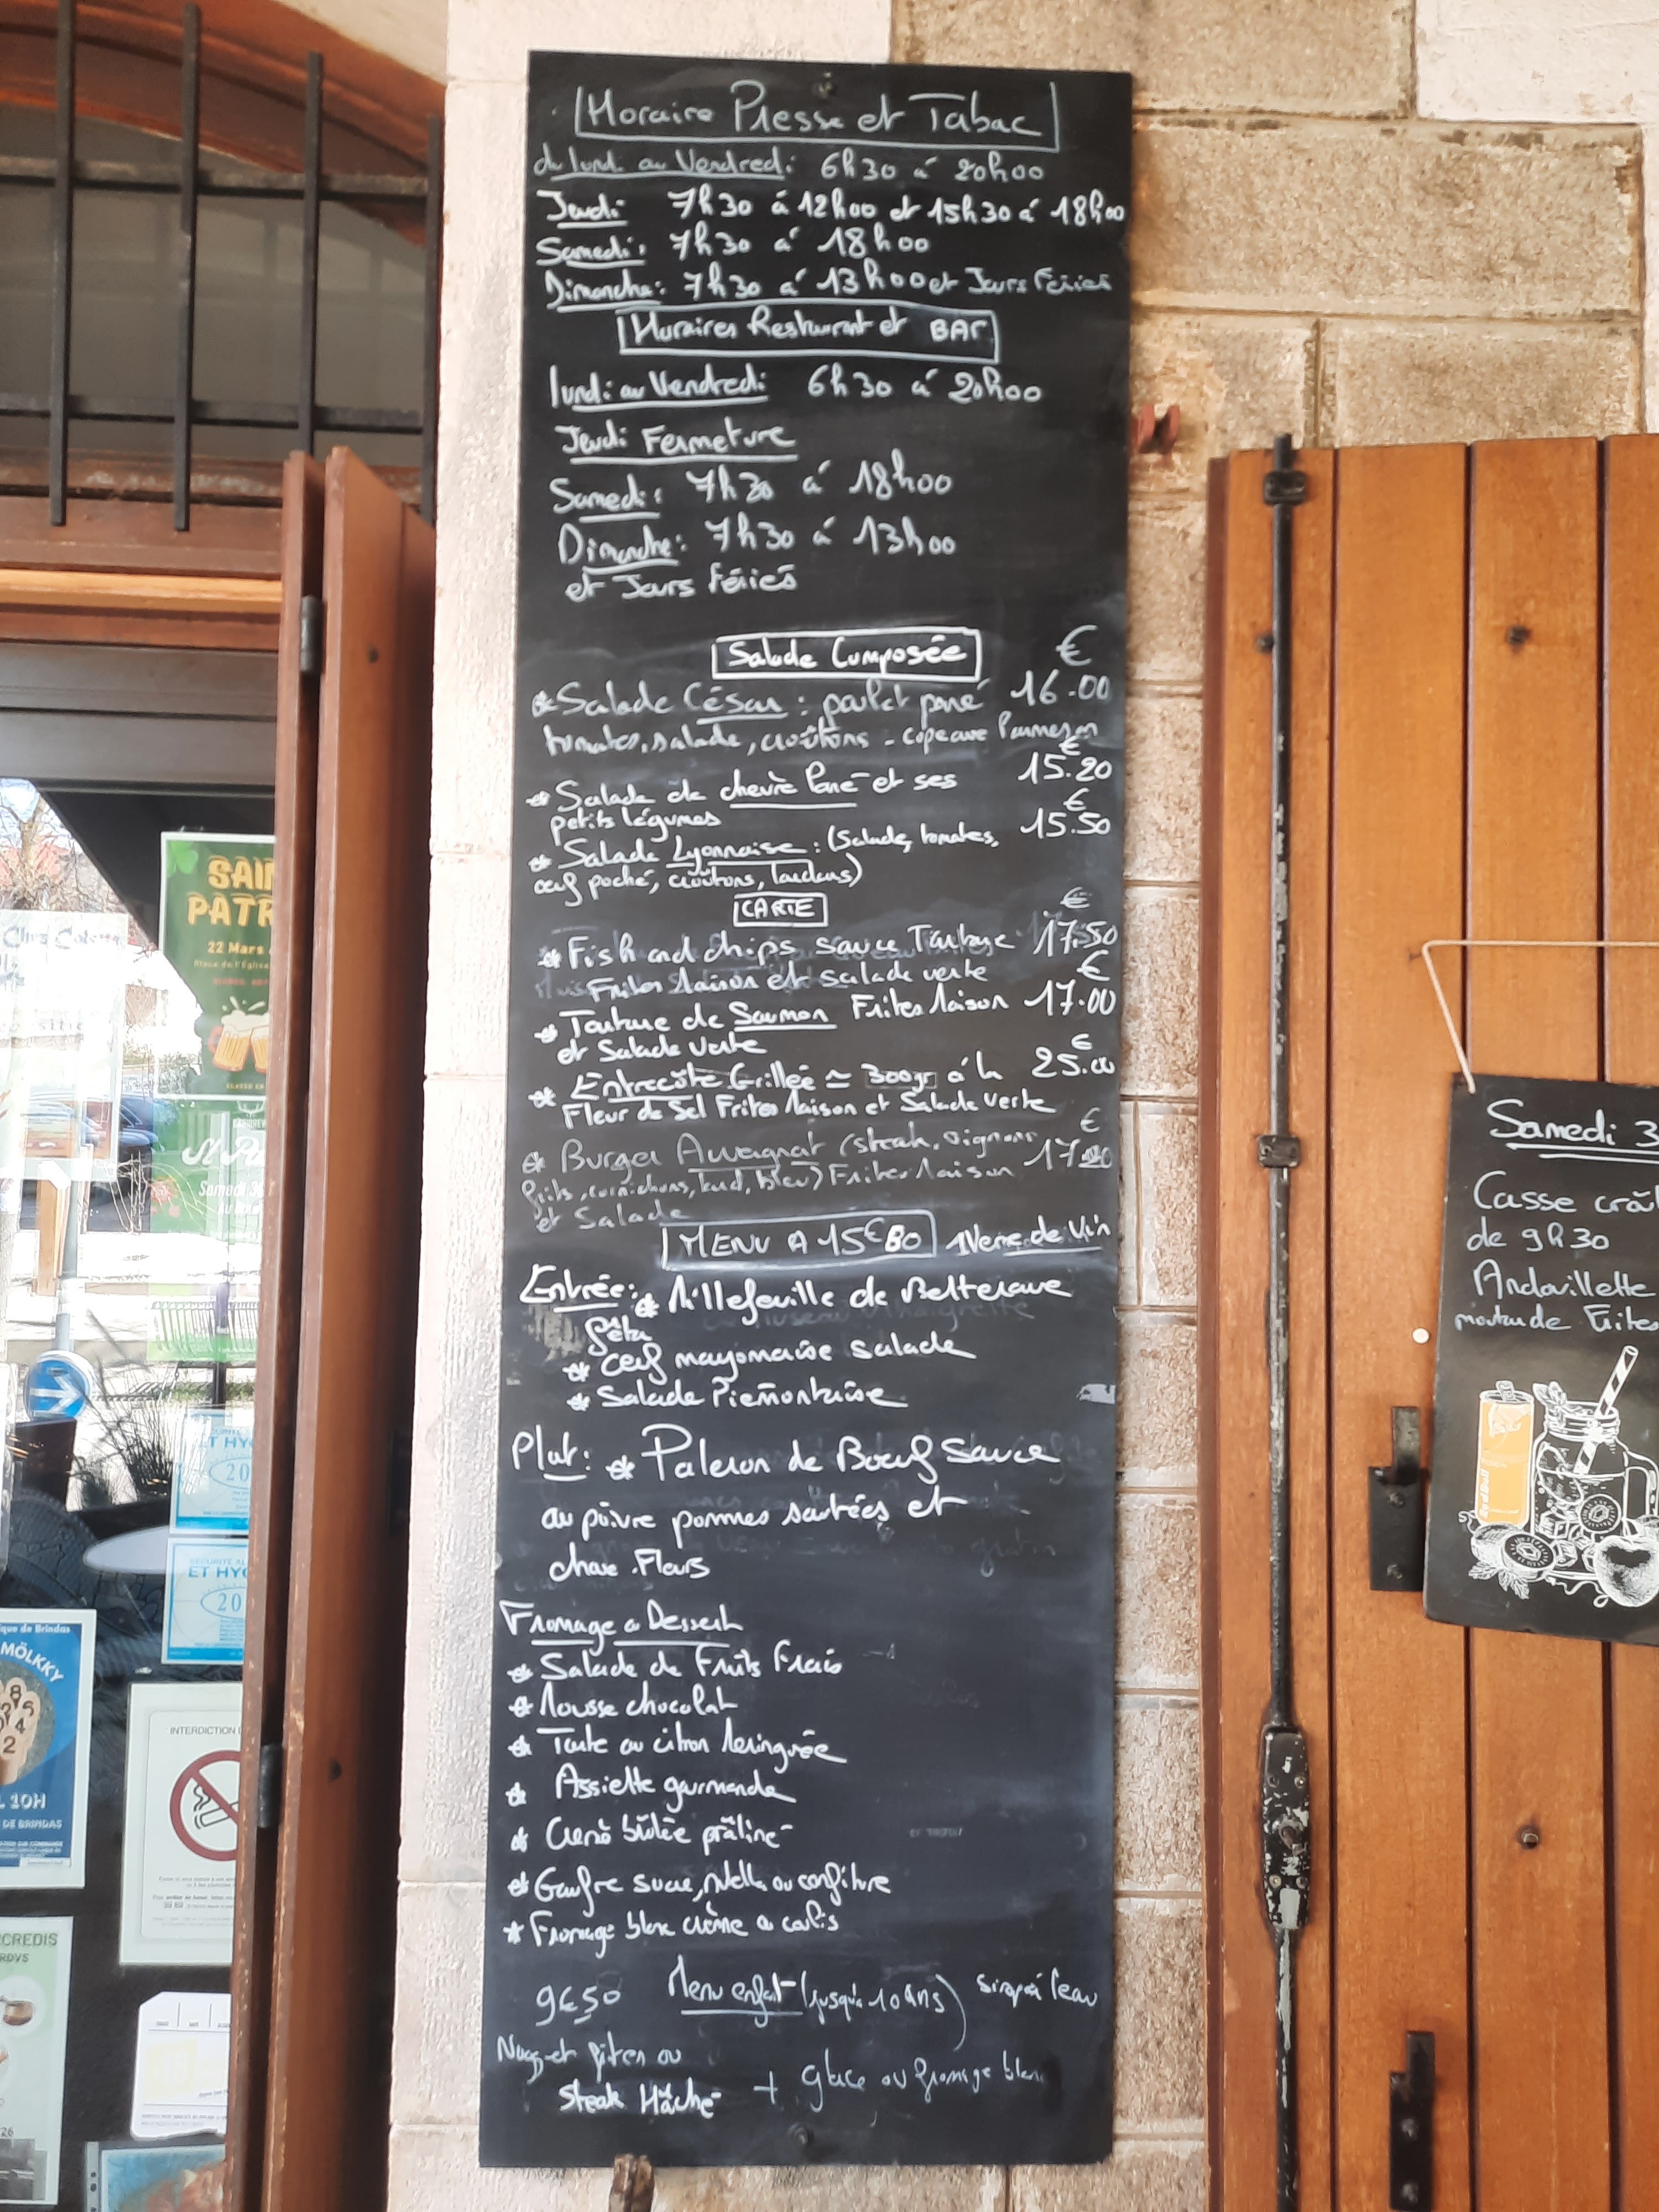 Horaire Presse et Tabac
du lundi au Vendredi: 6h30 á 20h00
Jeudi 7h30 á 12h00 et 15h30 á 18h00
Samedi: 7h30 á 18h00
Dimanche: 7h30 á 13h00 et Jours Fériés
Horaires Restaurant et BAr
lundi au Vendredi 6h30 á 20h00
Jeudi Fermeture
Samedi: 7h30 á 18h00
Dimanche: 7h30 á 13h00
et Jours fériés
Salade Composée €
* Salade César : poulet pané 16.00
tomates, salade, croûtons - copeaux Parmesan
€
* Salade de chevre Pané et ses 15.20
petits légumes €
* Salade Lyonnaise : (Salade, tomates, 15.50
œuf poché, croûtons, lardons)
CARTE €
* Fish and chips sauce Tartare 17.50
Frites Maison et salade verte €
* Tartare de Saumon Frites Maison 17.00
et Salade verte €
* Entrecôte Grillée ≃ 300gr á la 25.00
Fleur de Sel Frites Maison et Salade verte
€
* Burger Auvergnat (steak, oignons 17.20
frits, cornichons, lard, bleu) Frites Maison
et Salade
MENU A 15€80 1 Verre de Vin
Entrée: * Millefeuille de Betterave
fêta
* œuf mayonnaise salade
* Salade Piémontaise
Plat: * Paleron de Boeuf Sauce
au poivre pommes sautées et
choux-Fleurs
Fromage ou Dessert
* Salade de Fruits Frais
* Mousse chocolat
* Tarte au citron Meringuée
* Assiette gourmande
* Crème brûlée praliné
* Gaufre sucre, nutella ou confiture
* Fromage blanc crème ou coulis
9€50 Menu enfant (jusqu'a 10 ans) sirop á l'eau
Nugget frites ou
Steak Hâché + glace ou fromage blanc
Samedi 3
Casse croû
de 9h30
Andouillette
moutarde Frites
SAIN
PATR
22 Mars
Place de l'Église
Samedi 30
SÉCURITÉ AL
ET HYG
20
ET HYG
20
que de Brindas
MÖLKKY
10H
DE BRINDAS
INTERDICTION
CREDIS
RDVS